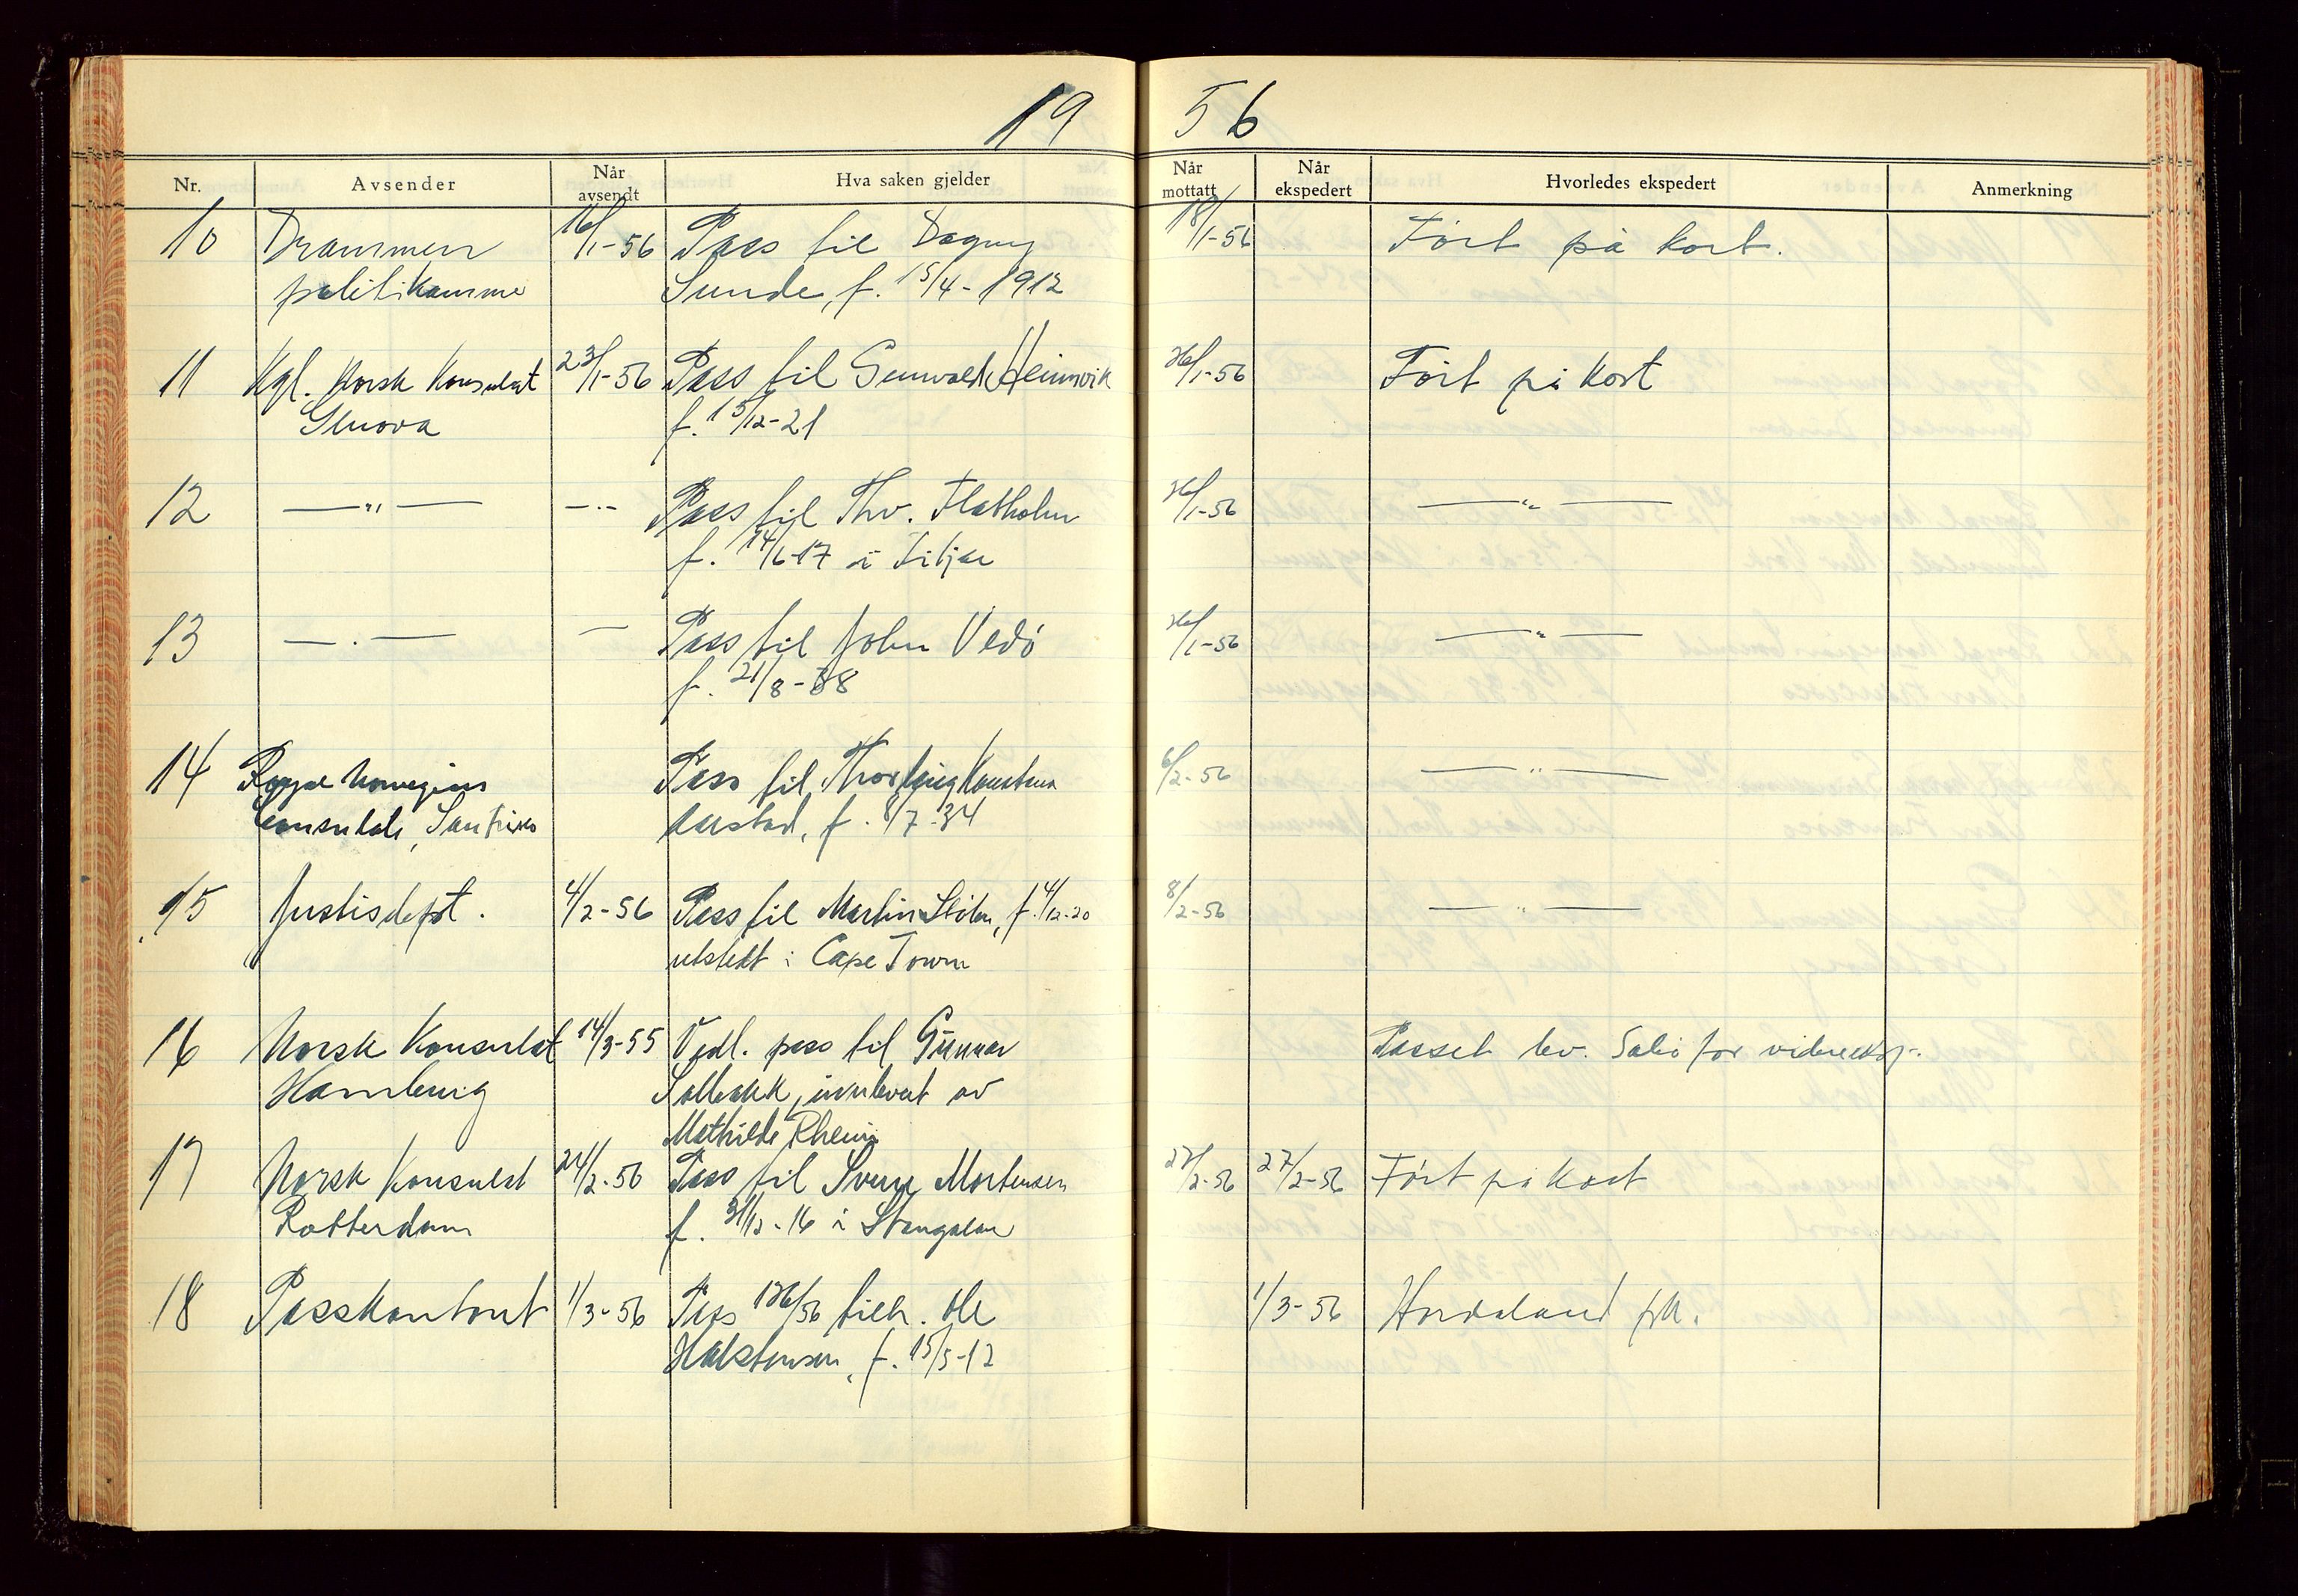 19 56
Nr. Avsender Når avsendt Hva saken gjelder Når mottatt Når ekspedert Hvorledes ekspedert Anmerkning
10 Drammen 16/1-56 Pass til Dagny 18/1-56 Ført på kort.
politikamme Sunde, f. 15/4-1912
11 Kgl. Norsk Konsulat 23/1-56 Pass til Gunvald Heimvik 26/1-56 Ført på kort
Genova f. 15/12-21
12 —"— —"— Pass til Thv. Flatholm 26/1-56 —"—
f. 14/6-17 i Fitjar
13 —"— — Pass til John Vedø 26/1-56 —"—
f. 21/8-38
14 Royal Norwegian Pass til 6/2-56 —"—
Consulate, f. 8/7-34
15 Justisdept. 4/2-56 Pass til Martin f. 4/12-20 8/2-56 —"—
utstedt i Cape Town
16 Norsk Konsulat 14/3-55 Vedl. pass til Gunnar Passet lev. for
Hamburg Solbakk, innlevert av
Mathilde Rhein
17 Norsk Konsulat 24/2-56 Pass til Sverre Mortensen 27/2-56 27/2-56 Ført på kort
Rotterdam f. 31/12-16 i
18 Passkontoret 1/3-56 Pass 126/56 tilh. Ole 1/3-56 Hordaland pk.
Halstensen, f. 15/5-12